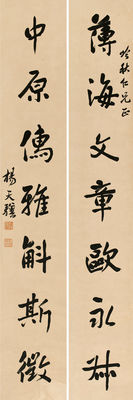 薄海文章歐永叔
吟秋仁兄正
中原儒雅斛斯徵
楊天驥